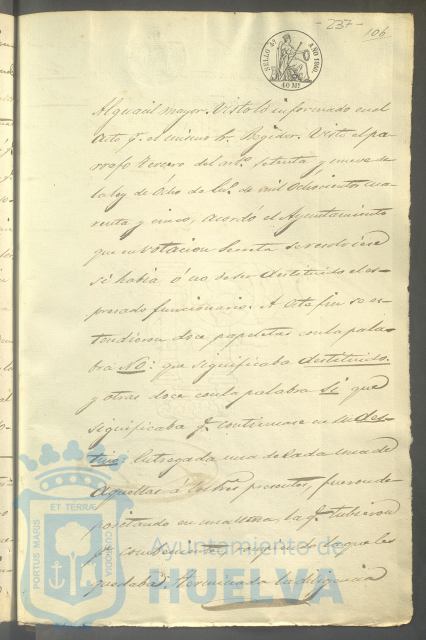 - 237 -
106
SELLO 4º AÑO 1860.
40 Ms
Alguacil mayor. Visto lo informado en el
acto p.r el mismo Sr. Regidor. Visto el pa-
rrafo tercero del artº. setenta y nueve de
la ley de Ocho de En.º de mil Ochocientos cua-
renta y cinco, acordó el Ayuntamiento
que en votacion Secreta se resolviese
si habia ó no de ser destituido el es-
presado funcionario. A este fin se es-
tendieron doce papeletas con la pala-
bra No: que significaba destituirlo:
y otras doce con la palabra Si que
significaba q.e continuase en su des-
tino: Entregada una de cada una de
aquellas á los Sres presentes, fueron de-
positando en una urna, la q.e tubieron
p.r conveniente, y la que les
quedaba. Terminada la diligencia
PORTUS MARIS ET TERRÆ CUSTODIA
Ayuntamiento de
HUELVA